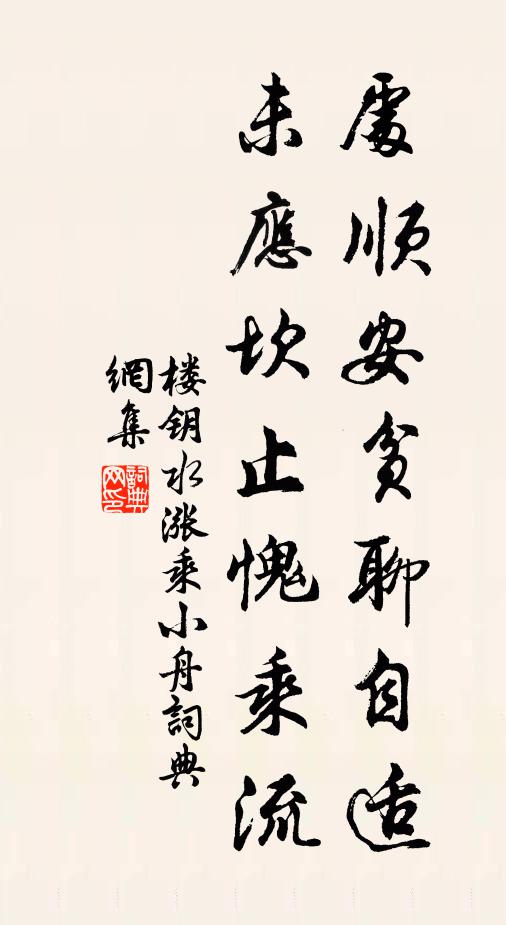 處順安貧聊自适
未應坎止愧乘流
楼钥水漲乘小舟詞典
網集
詞典
网印